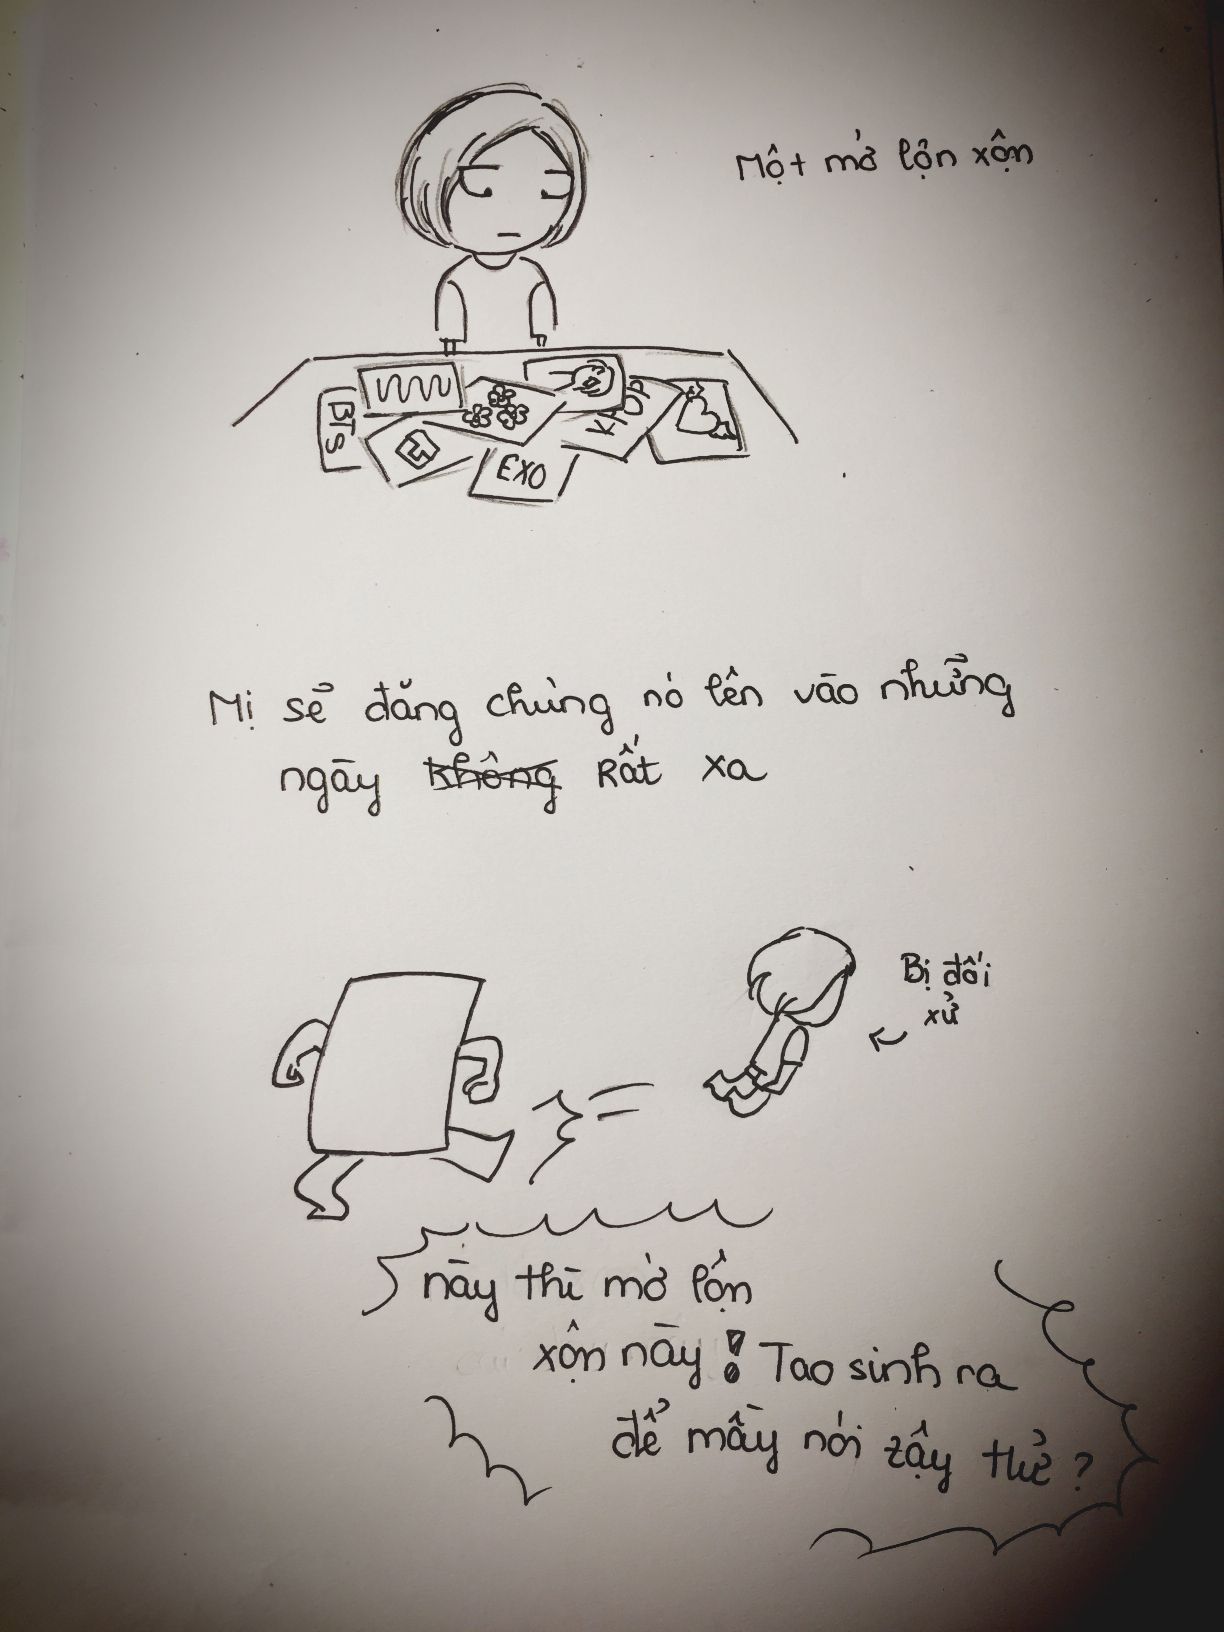 Một mở lộn xộn
BTS
EXO
KPOP
Mị sẽ đăng chúng nó lên vào những
ngày không Rất xa
Bị đối
xử
này thì mở lộn
xộn này! Tao sinh ra
để mầy nói zậy thử?